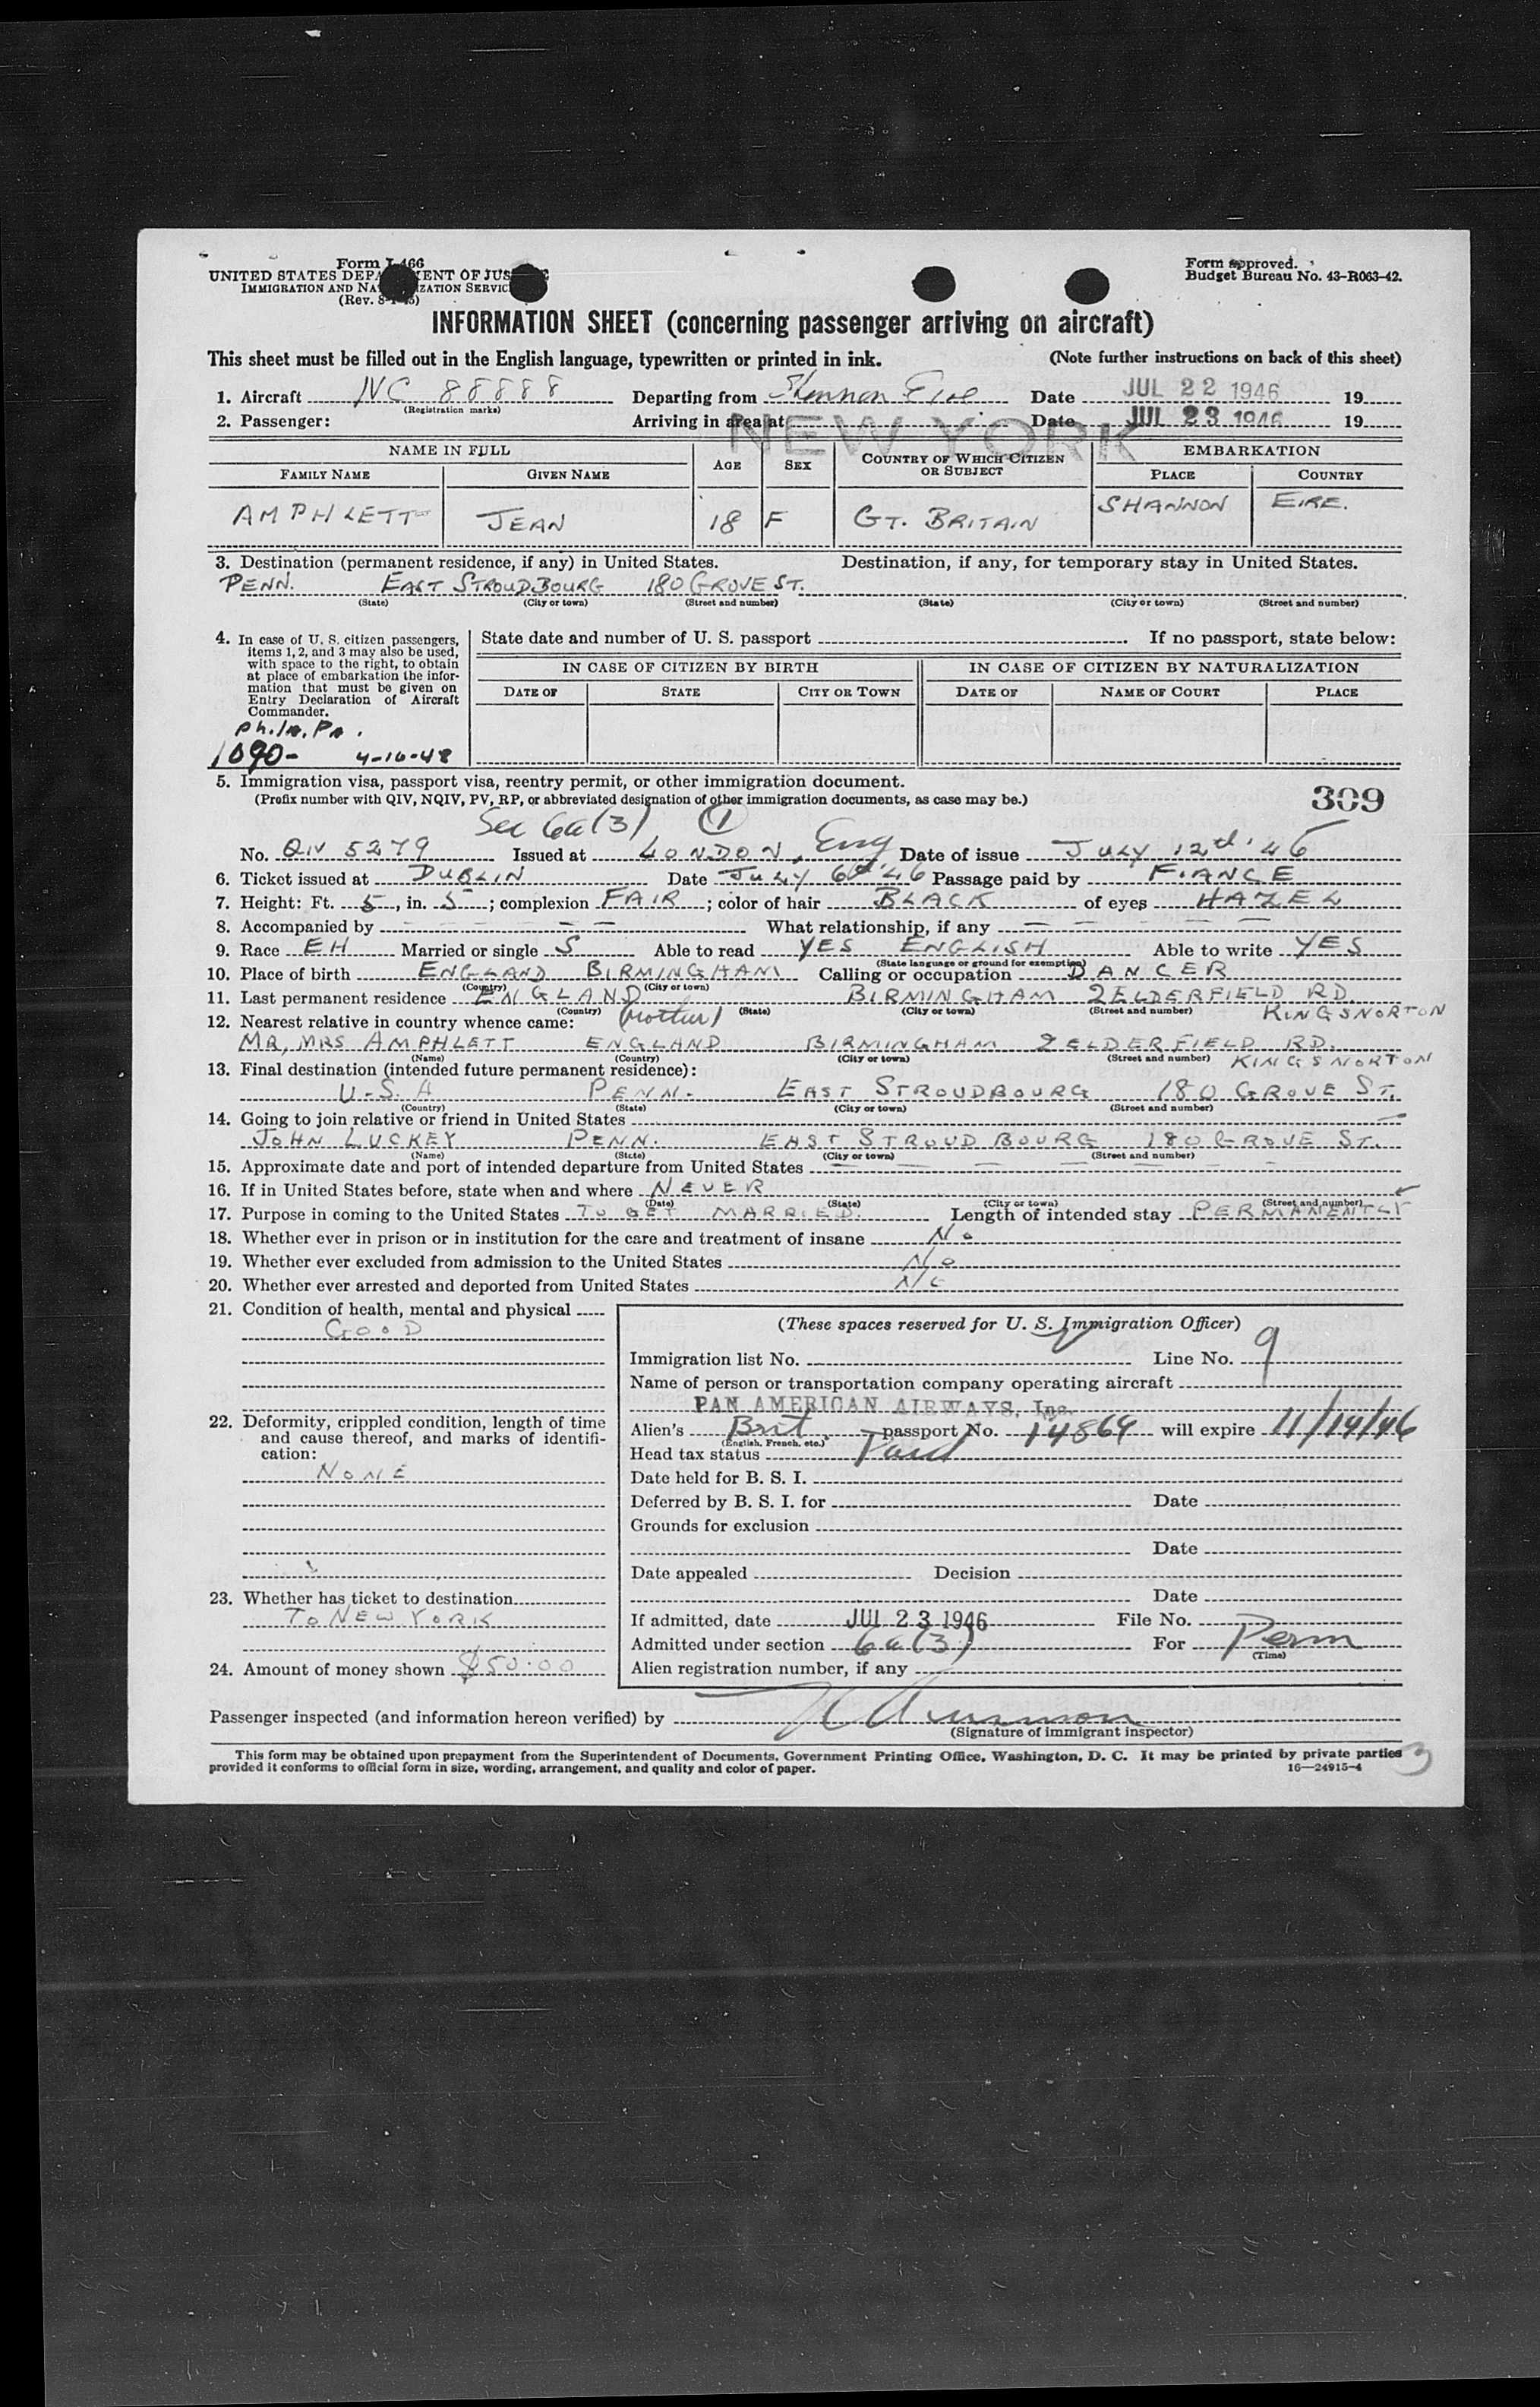 Form I-466
UNITED STATES DEPA ENT OF JUS E
IMMIGRATION AND NA IZATION SERVIC
(Rev. 8-1-45)
Form approved.
Budget Bureau No. 43-R063-42.
INFORMATION SHEET (concerning passenger arriving on aircraft)
This sheet must be filled out in the English language, typewritten or printed in ink. (Note further instructions on back of this sheet)
1. Aircraft NC 88888 Departing from Shannon Eire Date JUL 22 1946 19
(Registration marks)
2. Passenger: Arriving in area at NEW YORK Date JUL 23 1946 19
NAME IN FULL AGE SEX COUNTRY OF WHICH CITIZEN OR SUBJECT EMBARKATION
FAMILY NAME GIVEN NAME PLACE COUNTRY
AMPHLETT JEAN 18 F GT. BRITAIN SHANNON EIRE.
3. Destination (permanent residence, if any) in United States. Destination, if any, for temporary stay in United States.
PENN. EAST STROUDBOURG 180 GROVE ST.
(State) (City or town) (Street and number) (State) (City or town) (Street and number)
4. In case of U. S. citizen passengers, items 1, 2, and 3 may also be used, with space to the right, to obtain at place of embarkation the information that must be given on Entry Declaration of Aircraft Commander.
State date and number of U. S. passport If no passport, state below:
IN CASE OF CITIZEN BY BIRTH IN CASE OF CITIZEN BY NATURALIZATION
DATE OF STATE CITY OR TOWN DATE OF NAME OF COURT PLACE
Phila, Pa.
1090- 4-16-48
5. Immigration visa, passport visa, reentry permit, or other immigration document.
(Prefix number with QIV, NQIV, PV, RP, or abbreviated designation of other immigration documents, as case may be.) 309
Sec 6a(3) 1
No. QIV 5279 Issued at LONDON, Eng Date of issue JULY 12th '46
6. Ticket issued at DUBLIN Date JULY 6th '46 Passage paid by FIANCE
7. Height: Ft. 5, in. 5; complexion FAIR; color of hair BLACK of eyes HAZEL
8. Accompanied by What relationship, if any
9. Race EH Married or single S Able to read YES ENGLISH Able to write YES
(State language or ground for exemption)
10. Place of birth ENGLAND BIRMINGHAM Calling or occupation DANCER
(Country) (City or town)
11. Last permanent residence ENGLAND BIRMINGHAM 2 ELDERFIELD RD.
(Country) (State) (City or town) (Street and number) KINGSNORTON
12. Nearest relative in country whence came: (mother)
MR, MRS AMPHLETT ENGLAND BIRMINGHAM 2 ELDERFIELD RD.
(Name) (Country) (City or town) (Street and number) KINGSNORTON
13. Final destination (intended future permanent residence):
U.S.A PENN. EAST STROUDBOURG 180 GROVE ST.
(Country) (State) (City or town) (Street and number)
14. Going to join relative or friend in United States
JOHN LUCKEY PENN. EAST STROUDBOURG 180 GROVE ST.
(Name) (State) (City or town) (Street and number)
15. Approximate date and port of intended departure from United States
16. If in United States before, state when and where NEVER
(Date) (State) (City or town) (Street and number)
17. Purpose in coming to the United States TO GET MARRIED. Length of intended stay PERMANENTLY
18. Whether ever in prison or in institution for the care and treatment of insane No
19. Whether ever excluded from admission to the United States No
20. Whether ever arrested and deported from United States No
21. Condition of health, mental and physical
GOOD
22. Deformity, crippled condition, length of time and cause thereof, and marks of identification:
NONE
23. Whether has ticket to destination
TO NEW YORK
24. Amount of money shown $50.00
(These spaces reserved for U. S. Immigration Officer)
Immigration list No. Line No. 9
Name of person or transportation company operating aircraft
PAN AMERICAN AIRWAYS, Inc.
Alien's Brit passport No. 14864 will expire 11/14/46
(English, French, etc.)
Head tax status Paid
Date held for B. S. I.
Deferred by B. S. I. for Date
Grounds for exclusion
Date
Date appealed Decision
Date
If admitted, date JUL 23 1946 File No.
Admitted under section 6a(3) For Perm
(Time)
Alien registration number, if any
Passenger inspected (and information hereon verified) by
(Signature of immigrant inspector)
This form may be obtained upon prepayment from the Superintendent of Documents, Government Printing Office, Washington, D. C. It may be printed by private parties
provided it conforms to official form in size, wording, arrangement, and quality and color of paper. 16—24915-4
3